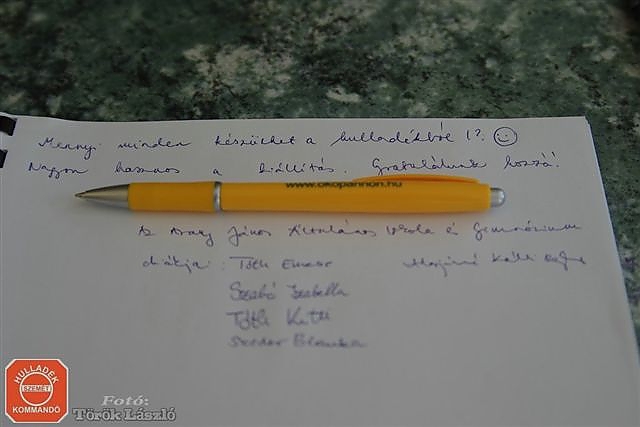 Mennyi minden készülhet a hulladékból!?
Nagyon hasznos a kiállítás. Gratulálunk hozzá!
www.okopannon.hu
Az Arany János Általános Iskola és Gimnázium
diákjai: Tóth Emese
Szabó Izabella
Tóth Kitti
Blanka
HULLADÉK
SZEMÉT
KOMMANDÓ
Fotó:
Török László